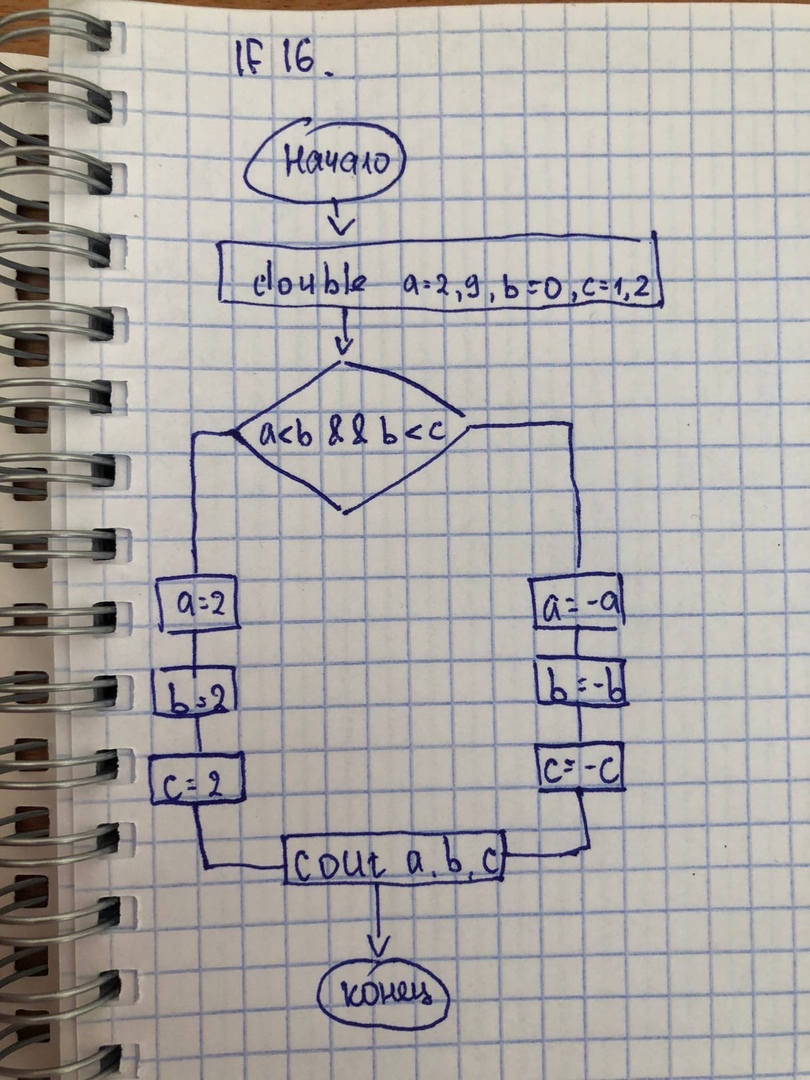 IF 16.
Начало
double a=2,9, b=0, c=1,2
a<b && b<c
a=2
a=-a
b=2
b=-b
c=2
c=-c
cout a, b, c
конец